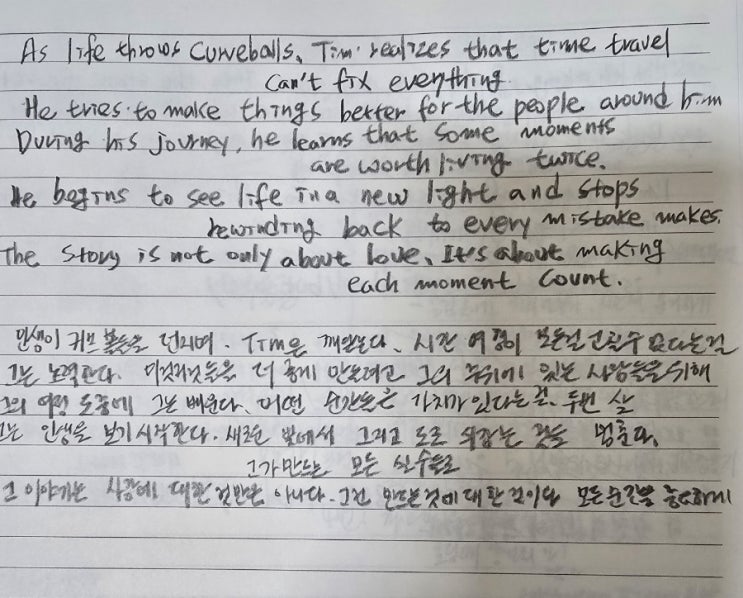 As life throws curveballs, Tim realizes that time travel
can't fix everything.
He tries to make things better for the people around him
During his journey, he learns that some moments
are worth living twice.
He begins to see life in a new light and stops
rewinding back to every mistake makes.
The story is not only about love, It's about making
each moment count.
인생이 커브 볼들을 던지며, Tim은 깨닫는다, 시간 여행이 모든걸 고칠수 없다는걸
그는 노력한다. 이것저것들을 더 좋게 만들려고 그의 주위에 있는 사람들을 위해
그의 여정 도중에 그는 배운다, 어떤 순간들은 가치가 있다는걸, 두번 살
그는 인생을 보기 시작한다. 새로운 빛에서 그리고 도로 되감는 것을 멈춘다,
그가 만드는 모든 실수들로
그 이야기는 사랑에 대한 것만은 아니다. 그건 만드는 것에 대한 것이다 모든 순간을 중요하게